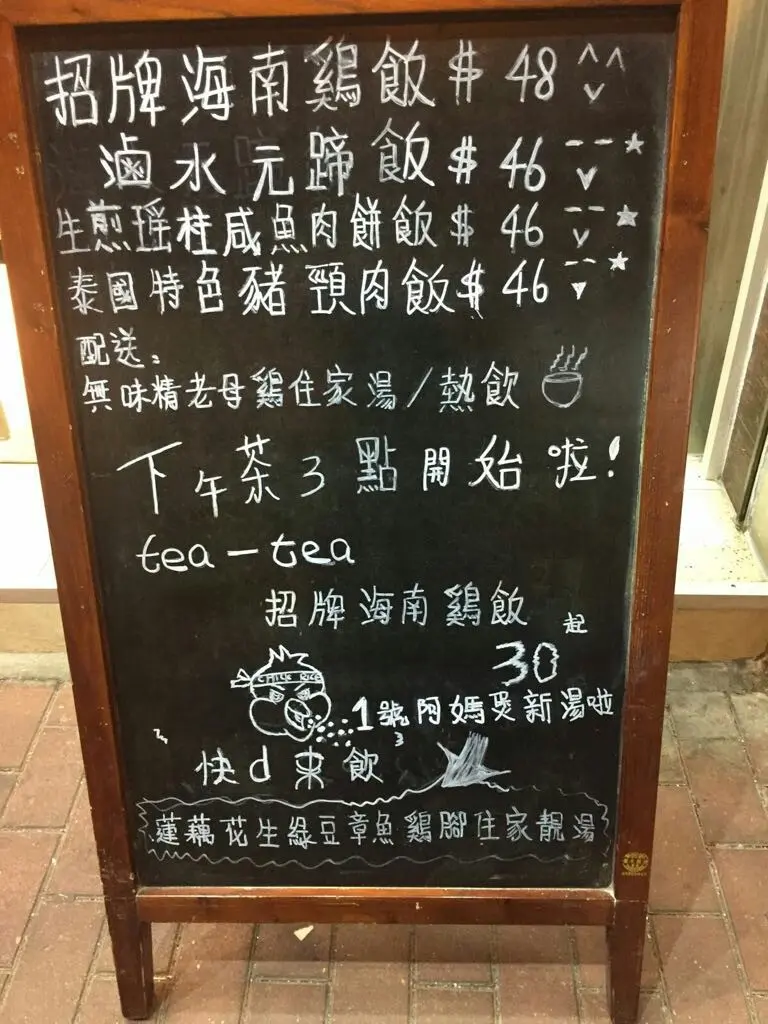 招牌海南鷄飯 $ 48
滷水元蹄飯 $ 46
生煎瑶柱咸魚肉餅飯 $ 46
泰國特色豬頸肉飯 $ 46
配送:
無味精老母鷄住家湯/熱飲
下午茶3點開始啦!
tea-tea
招牌海南鷄飯
30起
CHICK RICE
1號阿媽煲新湯啦
快d來飲
蓮藕花生綠豆章魚鷄腳住家靚湯